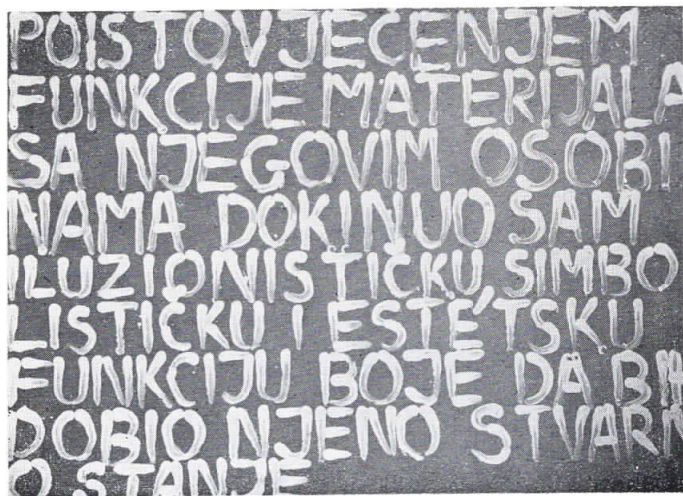 POISTOVJEĆENJEM
FUNKCIJE MATERIJALA
SA NJEGOVIM OSOBI
NAMA DOKINUO SAM
ILUZIONISTIČKU SIMBO
LISTIČKU I ESTETSKU
FUNKCIJU BOJE DA BIH
DOBIO NJENO STVARN
O STANJE